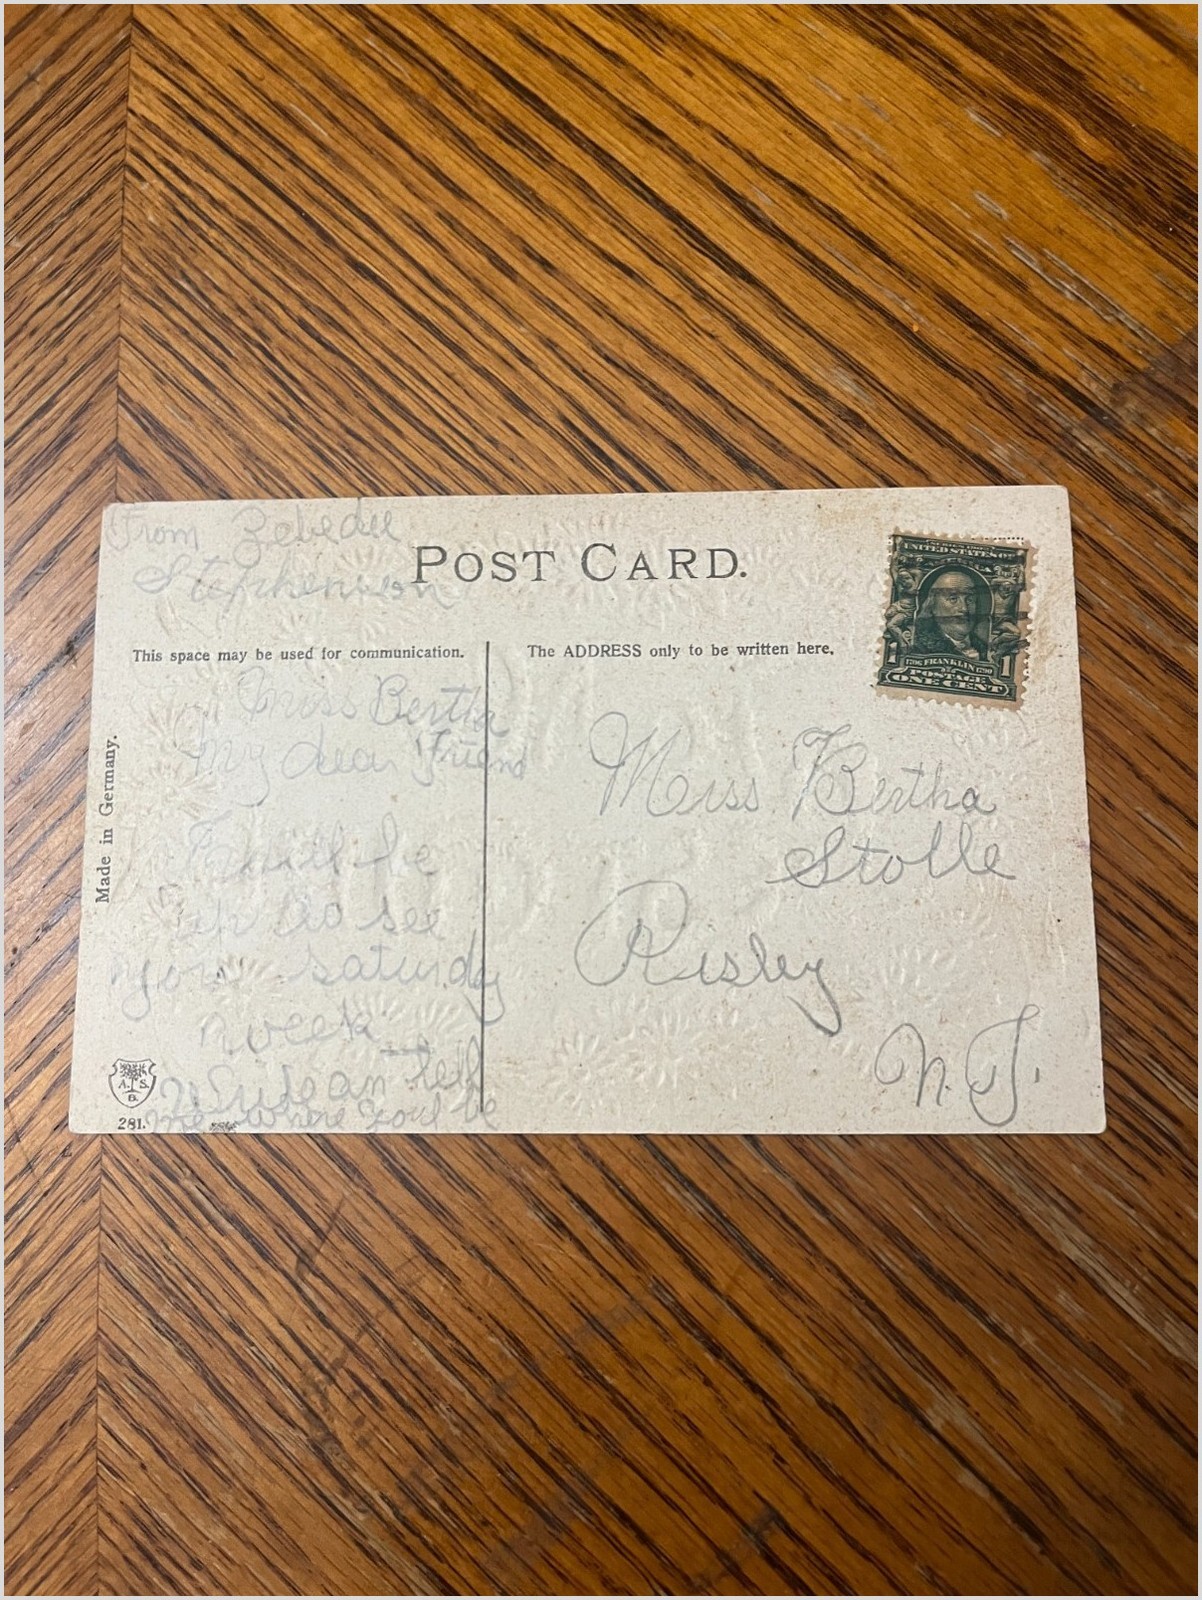 From Zebedee
Stephenson
POST CARD.
This space may be used for communication.
The ADDRESS only to be written here.
SERIES 1902
UNITED STATES OF
AMERICA
1 1
1706 FRANKLIN 1790
POSTAGE
ONE CENT
Made in Germany.
Miss Bertha
My dear Friend
I will be
up to see
you Saturday
week
tell
me where you'l be
A. S.
B.
281.
Miss Bertha
Stolle
Risley
N. J.